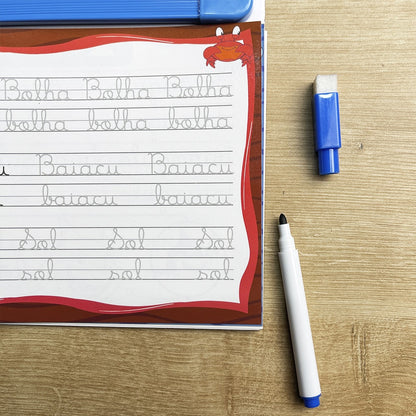 Bolha Bolha Bolha
bolha bolha bolha
u Baiacu Baiacu
baiacu baiacu
Sol Sol Sol
sol sol sol